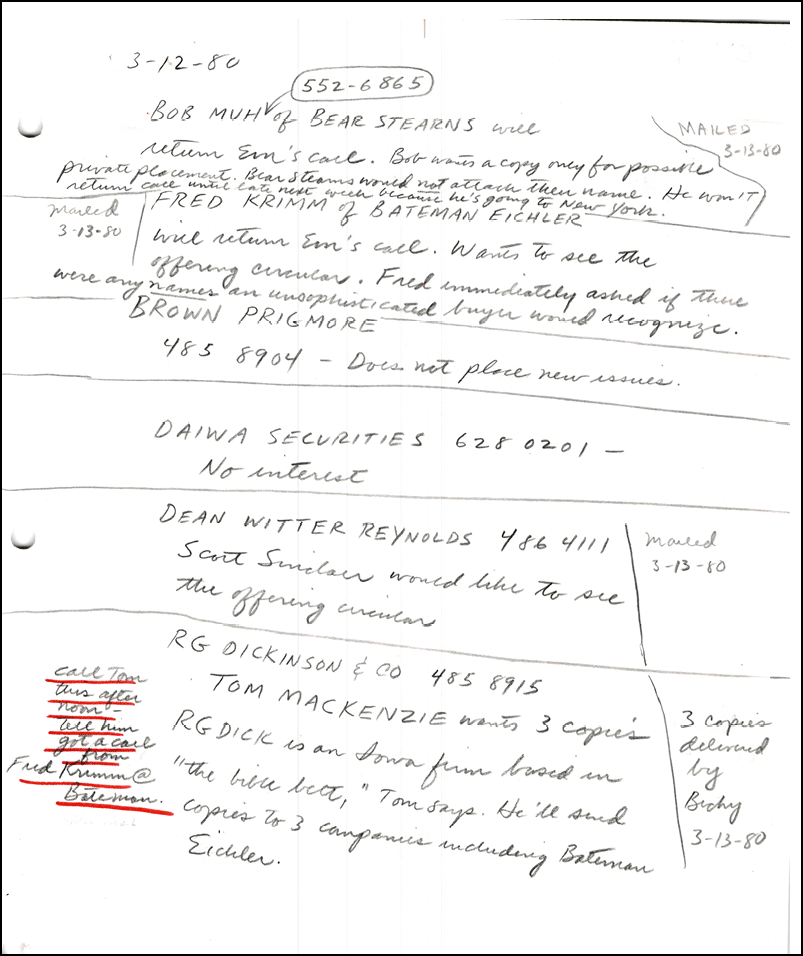 3-12-80
552-6865
BOB MUH of BEAR STEARNS will
return Em's call. Bob wants a copy only for possible
private placement. Bear Stearns would not attach their name. He won't
return call until late next week because he's going to New York.
MAILED
3-13-80
mailed
3-13-80
FRED KRIMM of BATEMAN EICHLER
will return Em's call. Wants to see the
offering circular. Fred immediately asked if there
were any names an unsophisticated buyer would recognize.
BROWN PRIGMORE
485 8904 - Does not place new issues.
DAIWA SECURITIES 628 0201 -
No interest
DEAN WITTER REYNOLDS 486 4111
Scott Sinclair would like to see
the offering circular
mailed
3-13-80
RG DICKINSON & CO 485 8915
TOM MACKENZIE wants 3 copies
RG DICK is an Iowa firm based in
"the bible belt," Tom says. He'll send
copies to 3 companies including Bateman
Eichler.
call Tom
this after
noon -
tell him
got a call
from
Fred Krimm @
Bateman.
3 copies
delivered
by
Bichy
3-13-80